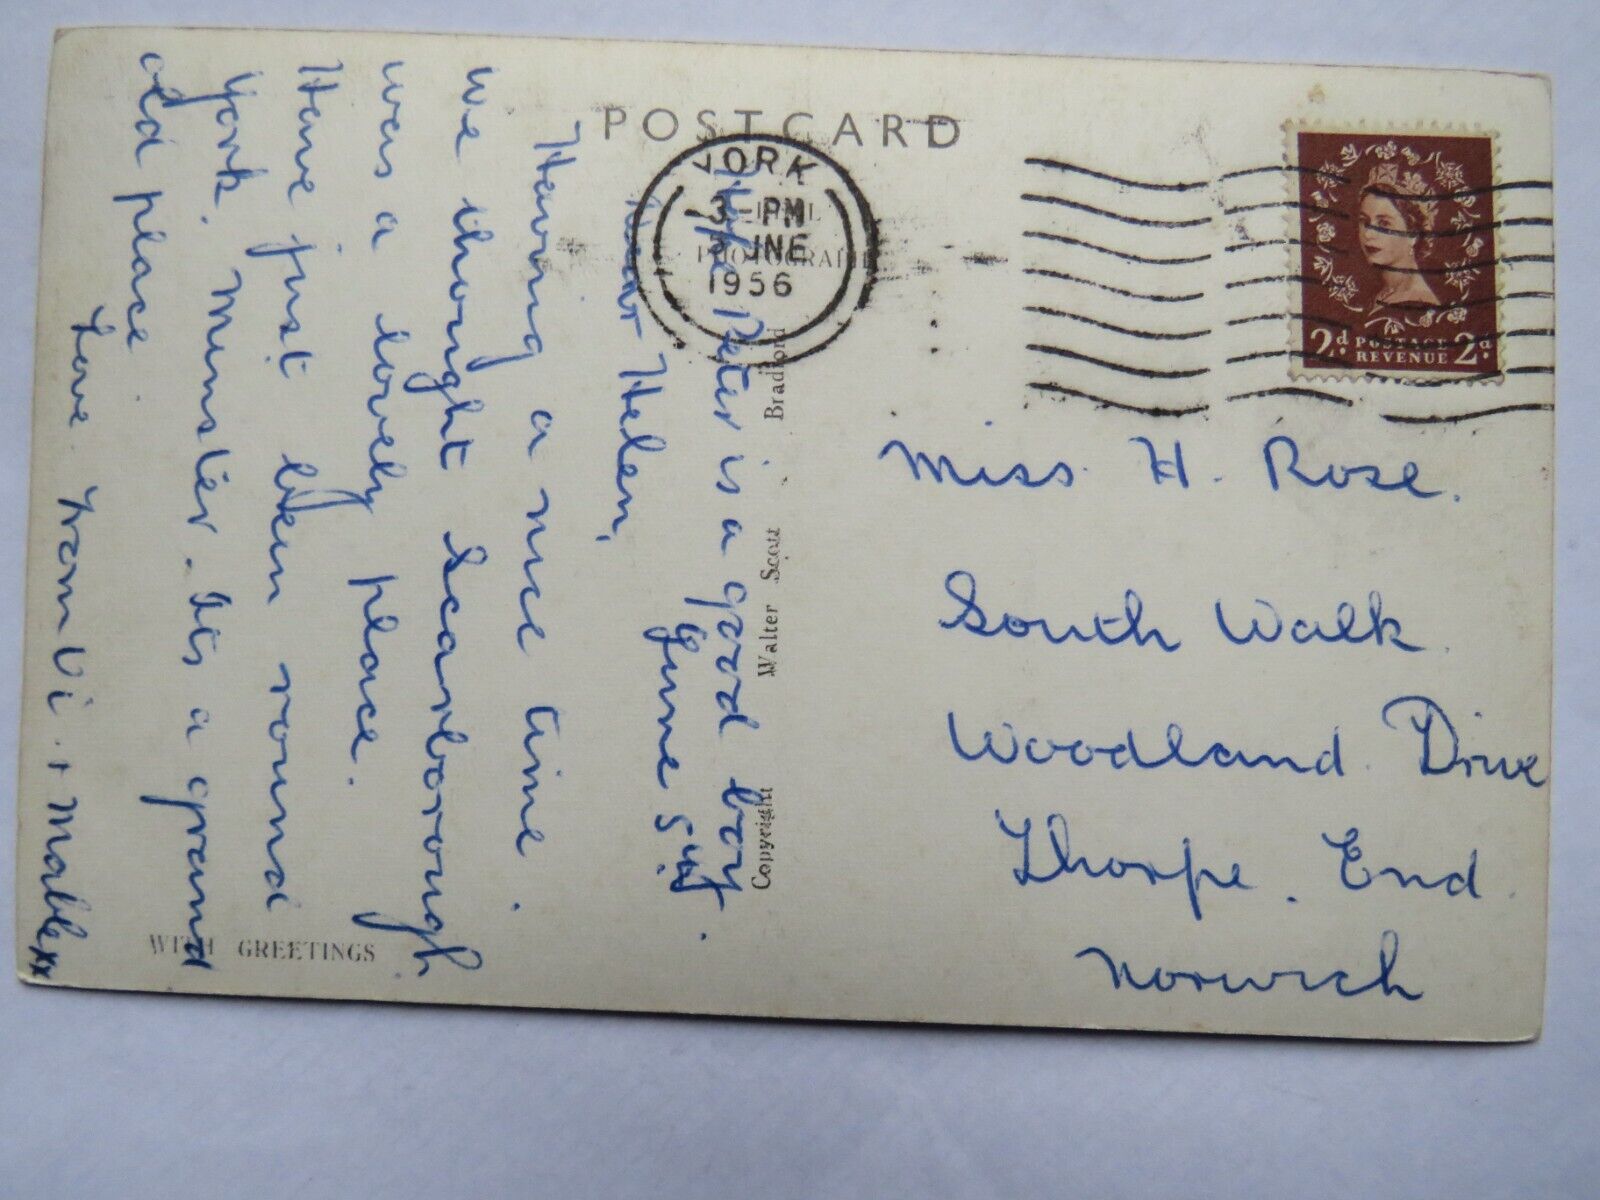 POST CARD
YORK
3 - PM
5 JNE
1956
REAL
PHOTOGRAPH
2d POSTAGE 2d
REVENUE
Hope Peter is a good boy.
June 5th
Dear Helen,
Having a nice time.
We thought Scarborough
was a lovely place.
Have just been round
York. Minster. Its a grand
old place.
Love. From Vi + Mable xx
Copyright Walter Scott Bradford
WITH GREETINGS
Miss. H. Rose.
South Walk.
Woodland. Drive
Thorpe. End.
Norwich